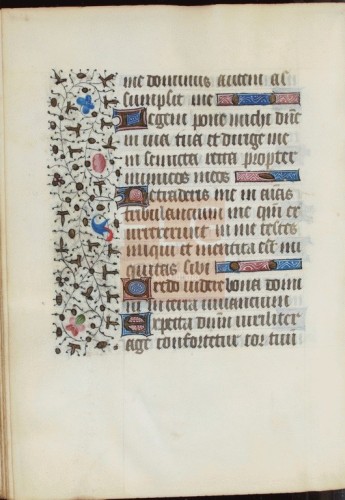 me dominus autem as
sumpsit me
Legem pone michi dñe
in via tua et dirige me
in semita recta propter
inimicos meos
Ne tradideris me in aĩas
tribulancium me qm̃ in
surrexerunt in me testes
iniqui et mentita est ini
quitas sibi
Credo videre bona domi
ni in terra vivencium
Expecta dñm viriliter
age confortetur cor tuũ